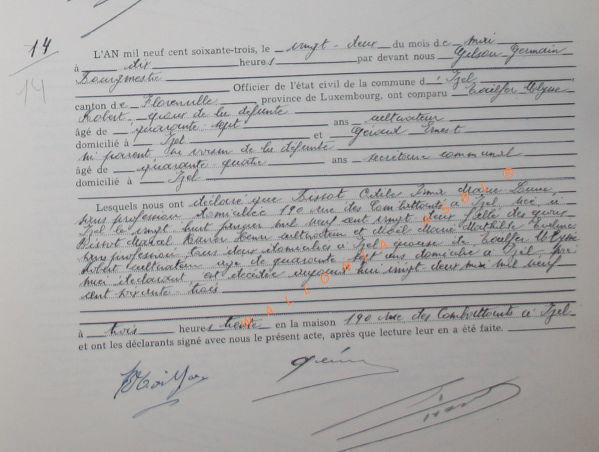 14
14
L'AN mil neuf cent soixante-trois, le vingt-deux du mois de mai
à dix heures par devant nous Gilson Germain
Bourgmestre Officier de l'état civil de la commune d'Izel
canton de Florenville province de Luxembourg, ont comparu
Robert, époux de la défunte
âgé de quarante sept ans cultivateur
domicilié à Izel et Ernest
ni parent, ni voisin de la défunte
âgé de quarante quatre ans secrétaire communal
domicilié à Izel
Lesquels nous ont déclaré que Marie
sans profession domiciliée 190 rue des Combattants à Izel, née à
Izel le vingt huit mil neuf cent vingt deux fille des époux
cultivateur et Noël Marie Mathilde
sans profession tous deux domiciliés à Izel épouse de
Robert cultivateur âgé de quarante sept ans domicilié à Izel
déclarant, est décédée aujourd'hui vingt-deux mai mil neuf
cent soixante trois
à trois heures trente en la maison 190 rue des Combattants à Izel
et ont les déclarants signé avec nous le présent acte, après que lecture leur en a été faite.